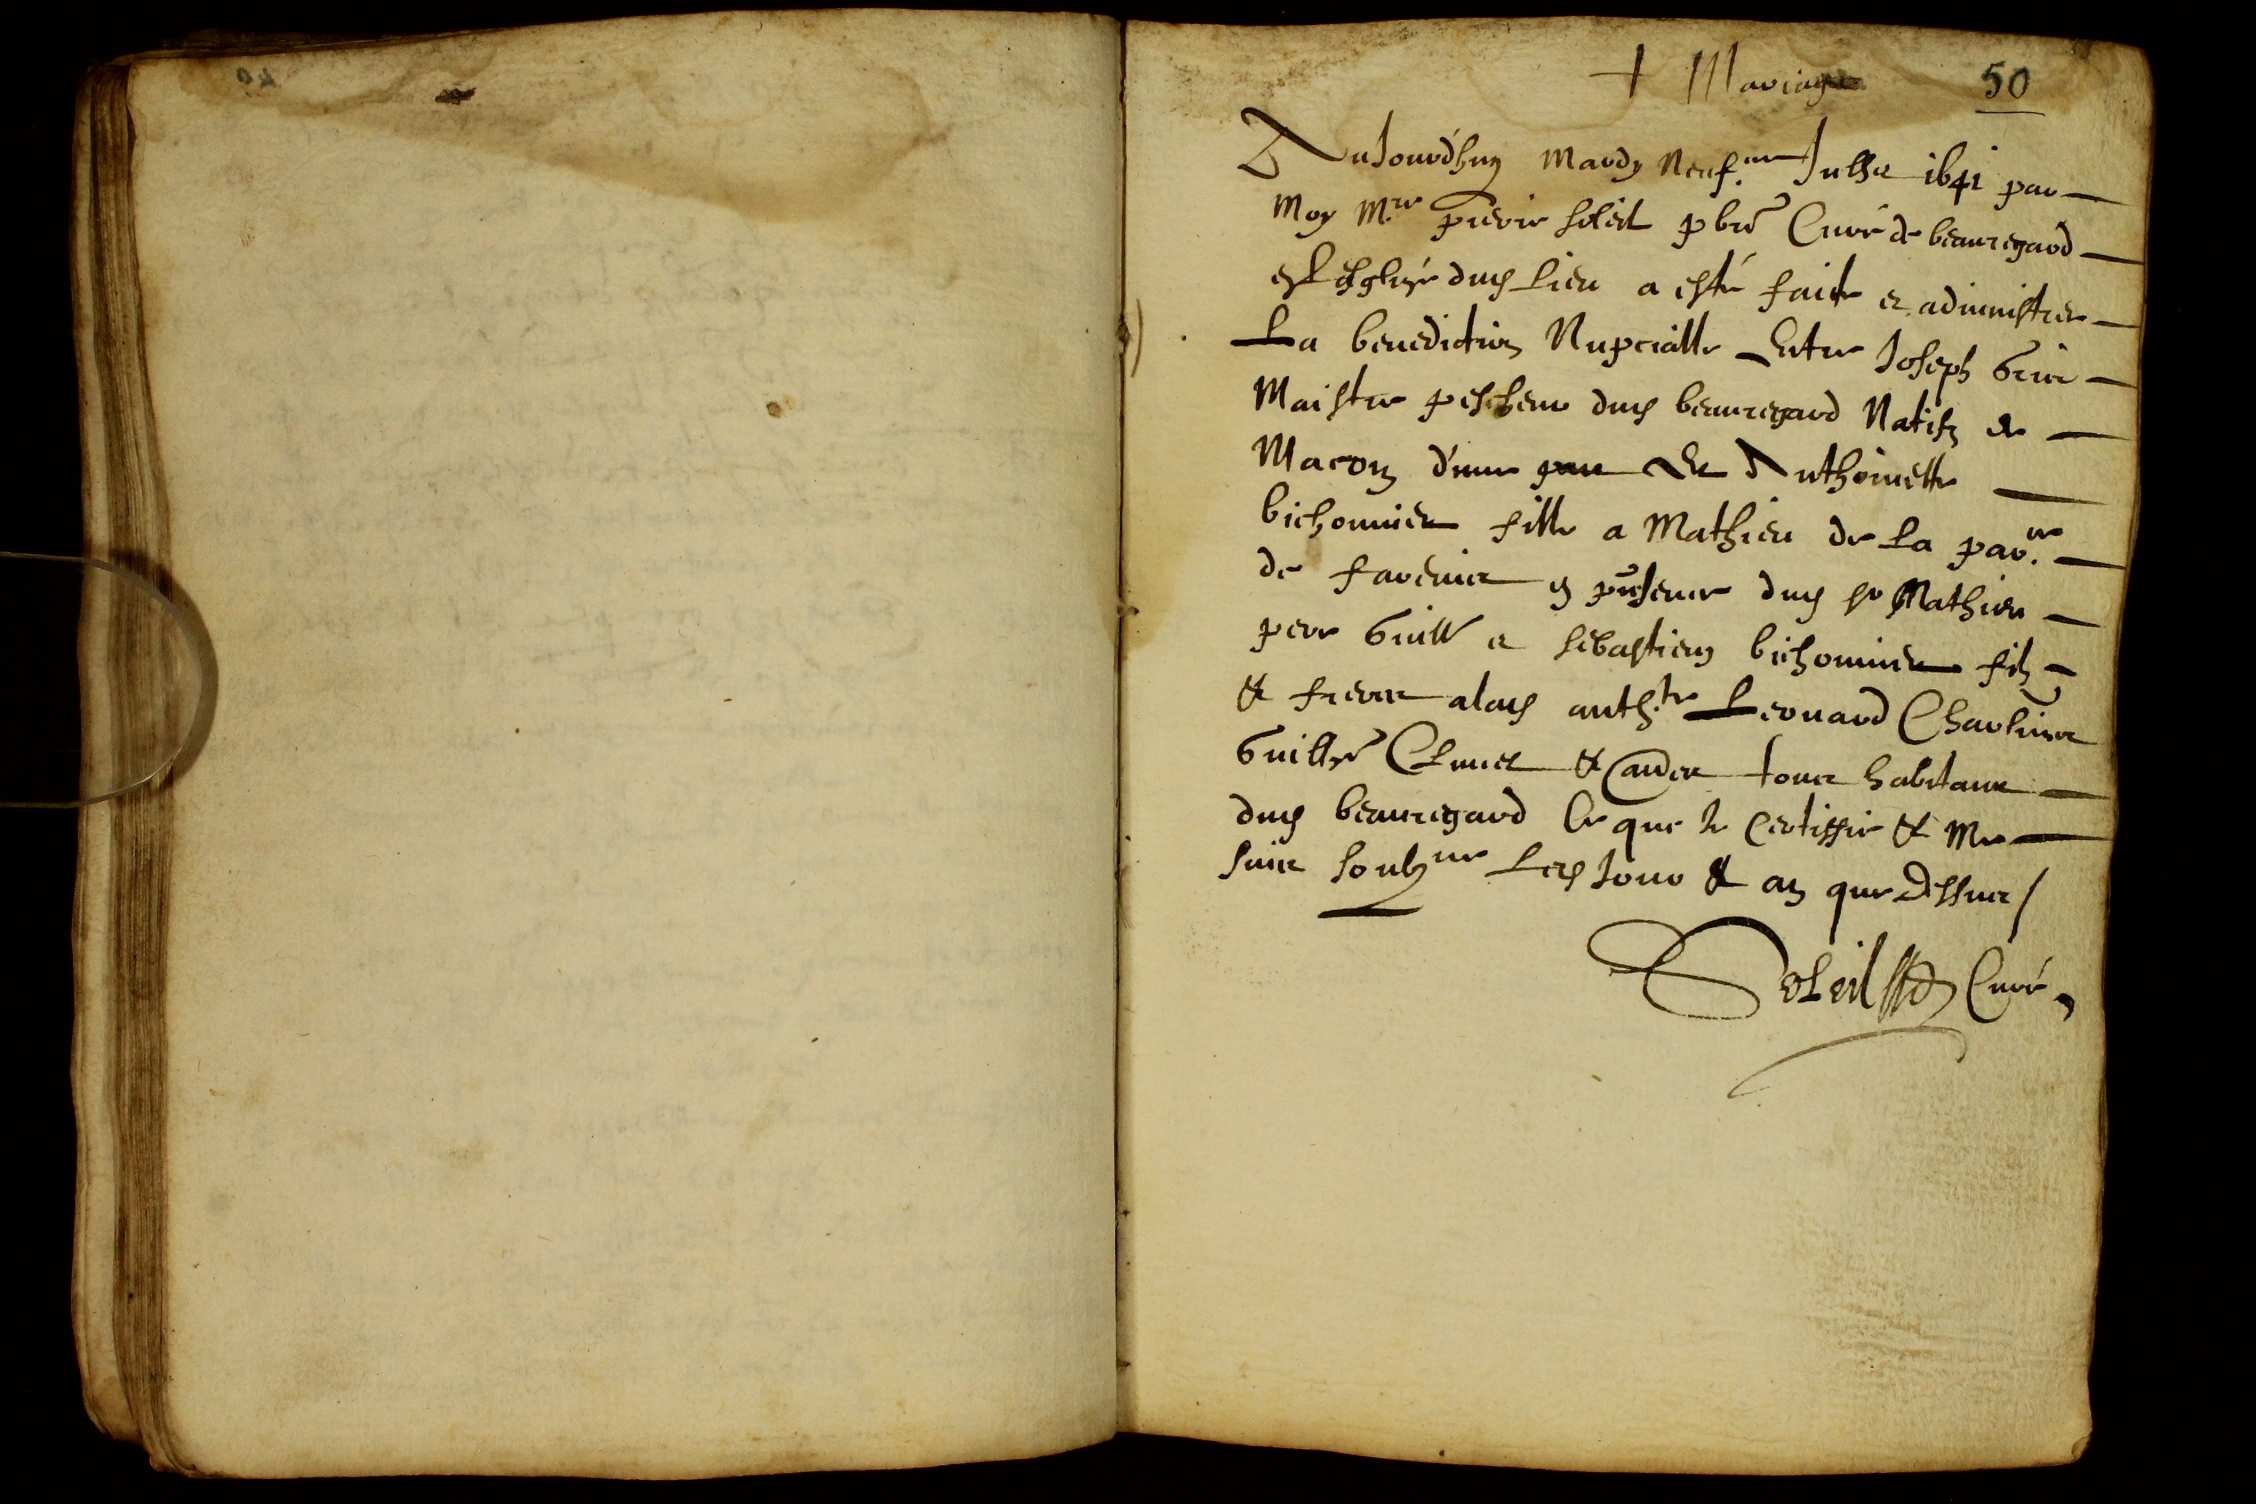 + Mariage 50
AuJourd'huy Mardy Neuf.me Jullet 1641 par
Moy M.re pierre soleil pbre Curé de beauregard
esglise dud Lieu a esté faicte et administree
La benediction Nupcialle Entre Joseph
Maistre pescheur dud beauregard Natifz de
Macon d'une part Et Anthoinette
bichonnier fille a Mathieu de La par.re
de farenier en presence dud sr Mathieu
pere Guill et sebastien bichonnier filz
et freres alad anth.te Leonard
Guille et tous habitans
dud beauregard Ce que Je Certiffie et Me
suis soubz.ne Lesd Jour et an que Dessus /
Soleil Curé